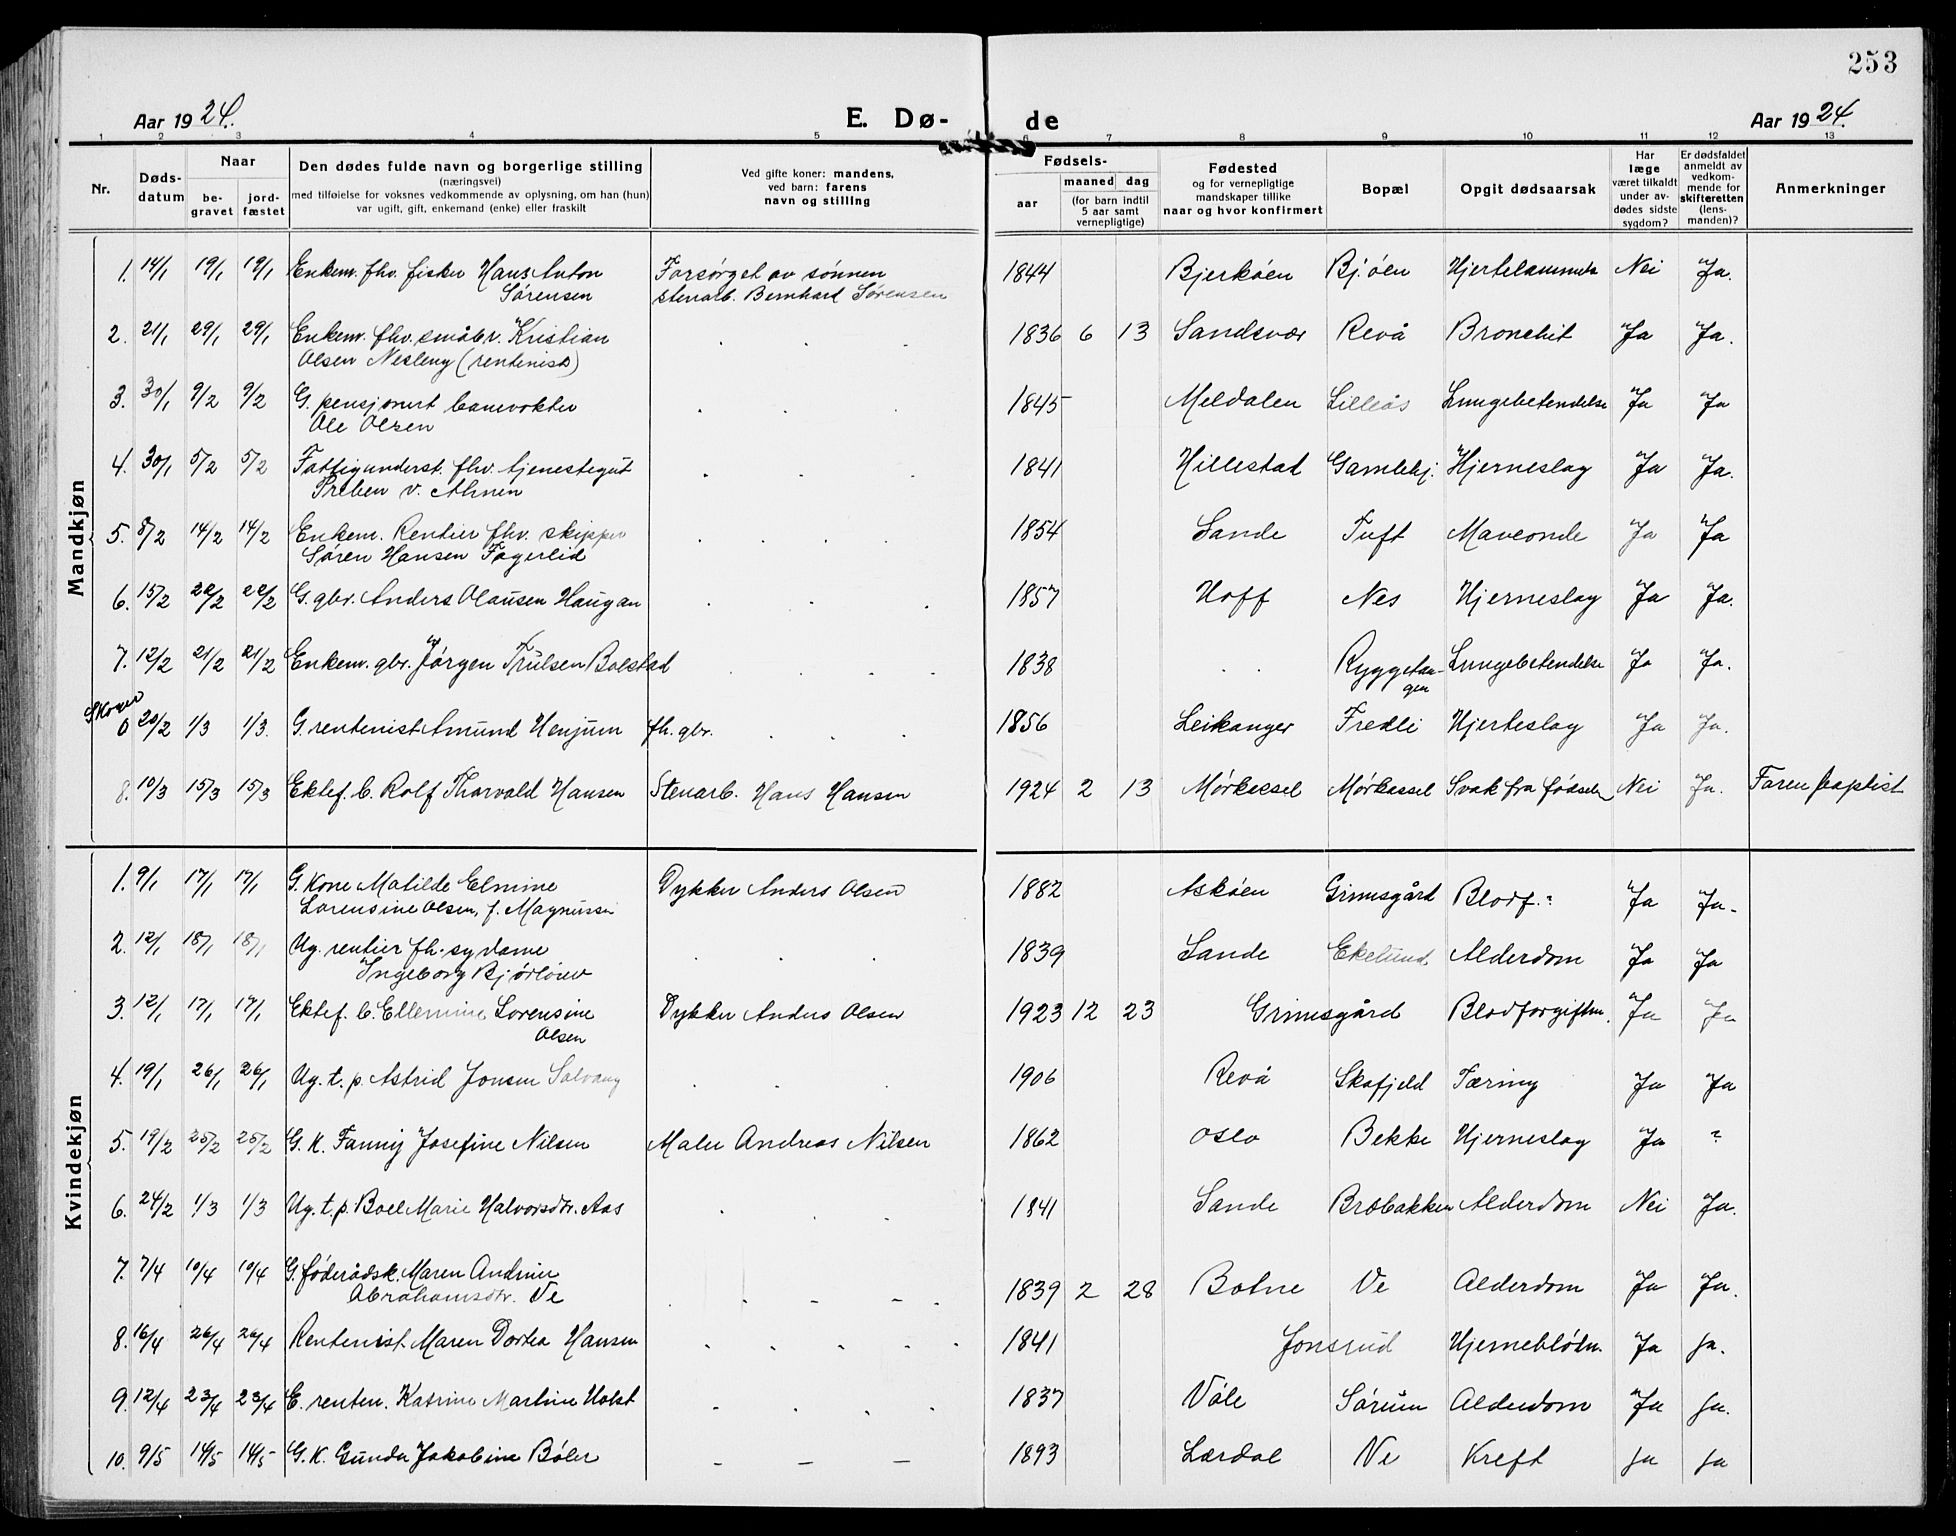 253
Aar 1924.
E. Dø-
de
Aar 1924.
1 2 3 4 5 6 7 8 9 10 11 12 13
Nr.
Døds-
datum
Naar
be-
gravet
jord-
fæstet
Den dødes fulde navn og borgerlige stilling
(næringsvei)
med tilføielse for voksnes vedkommende av oplysning, om han (hun)
var ugift, gift, enkemand (enke) eller fraskilt
Ved gifte koner: mandens,
ved barn: farens
navn og stilling
Fødsels-
aar
maaned dag
(for barn indtil
5 aar samt
vernepligtige)
Fødested
og for vernepligtige
mandskaper tillike
naar og hvor konfirmert
Bopæl
Opgit dødsaarsak
Har
læge
været tilkaldt
under av-
dødes sidste
sygdom?
Er dødsfaldet
anmeldt av
vedkom-
mende for
skifteretten
(lens-
manden)?
Anmerkninger
Mandkjøn
1. 14/1 19/1 19/1 Enkem. fhv. fisker Hans Anton Forsørget av sønnen 1844 Bjerkøen Bj.øen Hjertelammelse Nei Ja.
Sørensen stenarb. Bernhard Sørensen
2. 21/1 29/1 29/1 Enkem. fhv. småbr. Kristian 1836 6 13 Sandsvær Revå Bronchit Ja Ja.
Olsen Nesleny (rentenist)
3. 30/1 9/2 9/2 G. pensjonert banevokter 1845 Meldalen Lilleås Lungebetendelse Ja Ja
Ole Olsen
4. 30/1 5/2 5/2 Fattigunderst. fhv. tjenestegut 1841 Hillestad Gamlehj. Hjerneslag Ja Ja.
Preben v. Ahnen
5. 8/2 14/2 14/2 Enkem. Rentier fhv. skipper 1854 Sande Tuft Maveonde Ja Ja
Søren Hansen Fagerlid
6. 15/2 22/2 22/2 G. gbr. Anders Olausen Haugan 1857 Hoff Nes Hjerneslag Ja Ja.
7. 12/2 21/2 21/2 Enkem. gbr. Jørgen Trulsen Bolstad 1838 Ryggetan- Lungebetendelse Ja Ja.
gen
Skoger
0 20/2 1/3 1/3. G. rentenist Amund Henjum fh. gbr. 1856 Leikanger Fredli Hjerteslag Ja Ja.
8. 10/3 15/3 15/3 Ektef. b. Rolf Thorvald Hansen Stenarb. Hans Hansen 1924 2 13 Mørkessel Mørkassel Svak fra fødselen Nei Ja. Faren baptist
Kvindekjøn
1. 9/1 17/1 17/1 G. Kone Matilde Elmine Dykker Anders Olsen 1882 Askøen Grimsgård Blodf.? Ja Ja-
Lorensine Olsen, f. Magnussen
2. 12/1 18/1 18/1 Ug. rentier fh. sydame 1839 Sande Ekelund Alderdom Ja Ja
Ingeborg
3. 12/1 17/1 17/1 Ektef. b. Ellemine Lorensine Dykker Anders Olsen 1923 12 23 Grimsgård Blodforgiftn. Ja Ja
Olsen
4. 19/1 26/1 26/1 Ug. t. p. Astrid Jonsen Solvang 1906 Revå Skafjeld Tæring Ja Ja
5. 19/2 25/2 25/2 G. K. Fanny Josefine Nilsen Maler Andreas Nilsen 1862 Oslo Bekke Hjerneslag Ja ?
6. 24/2 1/3 1/3 Ug. t. p. Boel Marie Halvorsdtr. Aas 1841 Sande Bråbakken Alderdom Nei Ja.
7. 7/4 10/4 10/4 G. føderådsk. Maren Andrine
Abrahamsdtr. Ve 1839 2 28 Botne Ve Alderdom Ja Ja.
8. 16/4 26/4 26/4 Rentenist Maren Dortea Hansen 1841 Jonsrud Hjerneblødn. Ja Ja.
9. 12/4 23/4 23/4 E. renten. Katrine Martine Holst 1837 Våle Sørum Alderdom Ja Ja.
10. 9/5 14/5 14/5 G. K. Gunda Jakobine Bøler 1893 Lærdal Ve Kreft Ja Ja